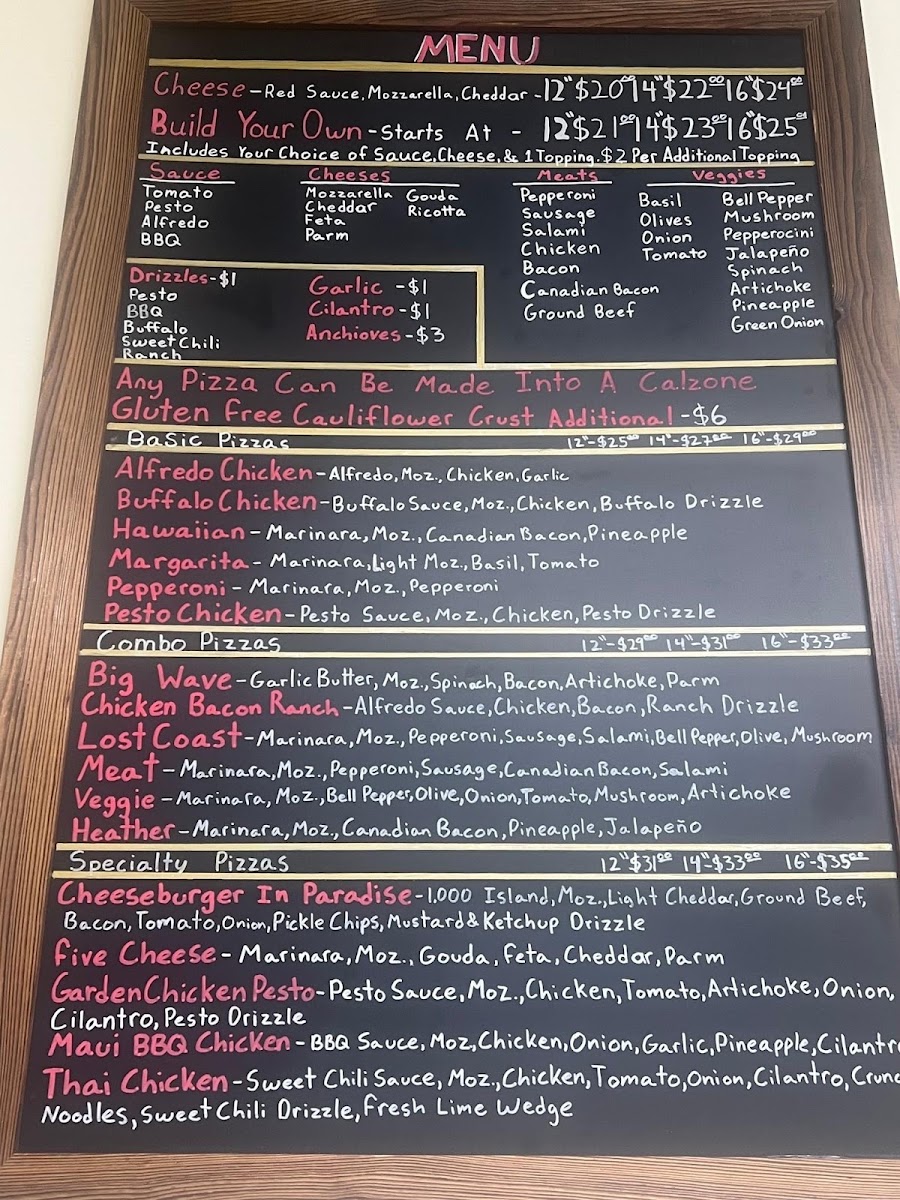 MENU
Cheese - Red Sauce, Mozzarella, Cheddar - 12" $20⁰⁰ 14" $22⁰⁰ 16" $24⁰⁰
Build Your Own - Starts At - 12" $21⁰⁰ 14" $23⁰⁰ 16" $25⁰⁰
Includes Your Choice of Sauce, Cheese, & 1 Topping. $2 Per Additional Topping
Sauce
Tomato
Pesto
Alfredo
BBQ
Cheeses
Mozzarella Gouda
Cheddar Ricotta
Feta
Parm
Meats
Pepperoni
Sausage
Salami
Chicken
Bacon
Canadian Bacon
Ground Beef
Veggies
Basil Bell Pepper
Olives Mushroom
Onion Pepperocini
Tomato Jalapeño
Spinach
Artichoke
Pineapple
Green Onion
Drizzles - $1
Pesto
BBQ
Buffalo
Sweet Chili
Ranch
Garlic - $1
Cilantro - $1
Anchioves - $3
Any Pizza Can Be Made Into A Calzone
Gluten Free Cauliflower Crust Additional - $6
Basic Pizzas 12"-$25⁰⁰ 14"-$27⁰⁰ 16"-$29⁰⁰
Alfredo Chicken - Alfredo, Moz., Chicken, Garlic
Buffalo Chicken - Buffalo Sauce, Moz., Chicken, Buffalo Drizzle
Hawaiian - Marinara, Moz., Canadian Bacon, Pineapple
Margarita - Marinara, Light Moz., Basil, Tomato
Pepperoni - Marinara, Moz., Pepperoni
Pesto Chicken - Pesto Sauce, Moz., Chicken, Pesto Drizzle
Combo Pizzas 12"-$29⁰⁰ 14"-$31⁰⁰ 16"-$33⁰⁰
Big Wave - Garlic Butter, Moz., Spinach, Bacon, Artichoke, Parm
Chicken Bacon Ranch - Alfredo Sauce, Chicken, Bacon, Ranch Drizzle
Lost Coast - Marinara, Moz., Pepperoni, Sausage, Salami, Bell Pepper, Olive, Mushroom
Meat - Marinara, Moz., Pepperoni, Sausage, Canadian Bacon, Salami
Veggie - Marinara, Moz., Bell Pepper, Olive, Onion, Tomato, Mushroom, Artichoke
Heather - Marinara, Moz., Canadian Bacon, Pineapple, Jalapeño
Specialty Pizzas 12" $31⁰⁰ 14"-$33⁰⁰ 16"-$35⁰⁰
Cheeseburger In Paradise - 1,000 Island, Moz., Light Cheddar, Ground Beef,
Bacon, Tomato, Onion, Pickle Chips, Mustard & Ketchup Drizzle
Five Cheese - Marinara, Moz., Gouda, Feta, Cheddar, Parm
Garden Chicken Pesto - Pesto Sauce, Moz., Chicken, Tomato, Artichoke, Onion,
Cilantro, Pesto Drizzle
Maui BBQ Chicken - BBQ Sauce, Moz, Chicken, Onion, Garlic, Pineapple, Cilantr
Thai Chicken - Sweet Chili Sauce, Moz., Chicken, Tomato, Onion, Cilantro, Crun
Noodles, Sweet Chili Drizzle, Fresh Lime Wedge